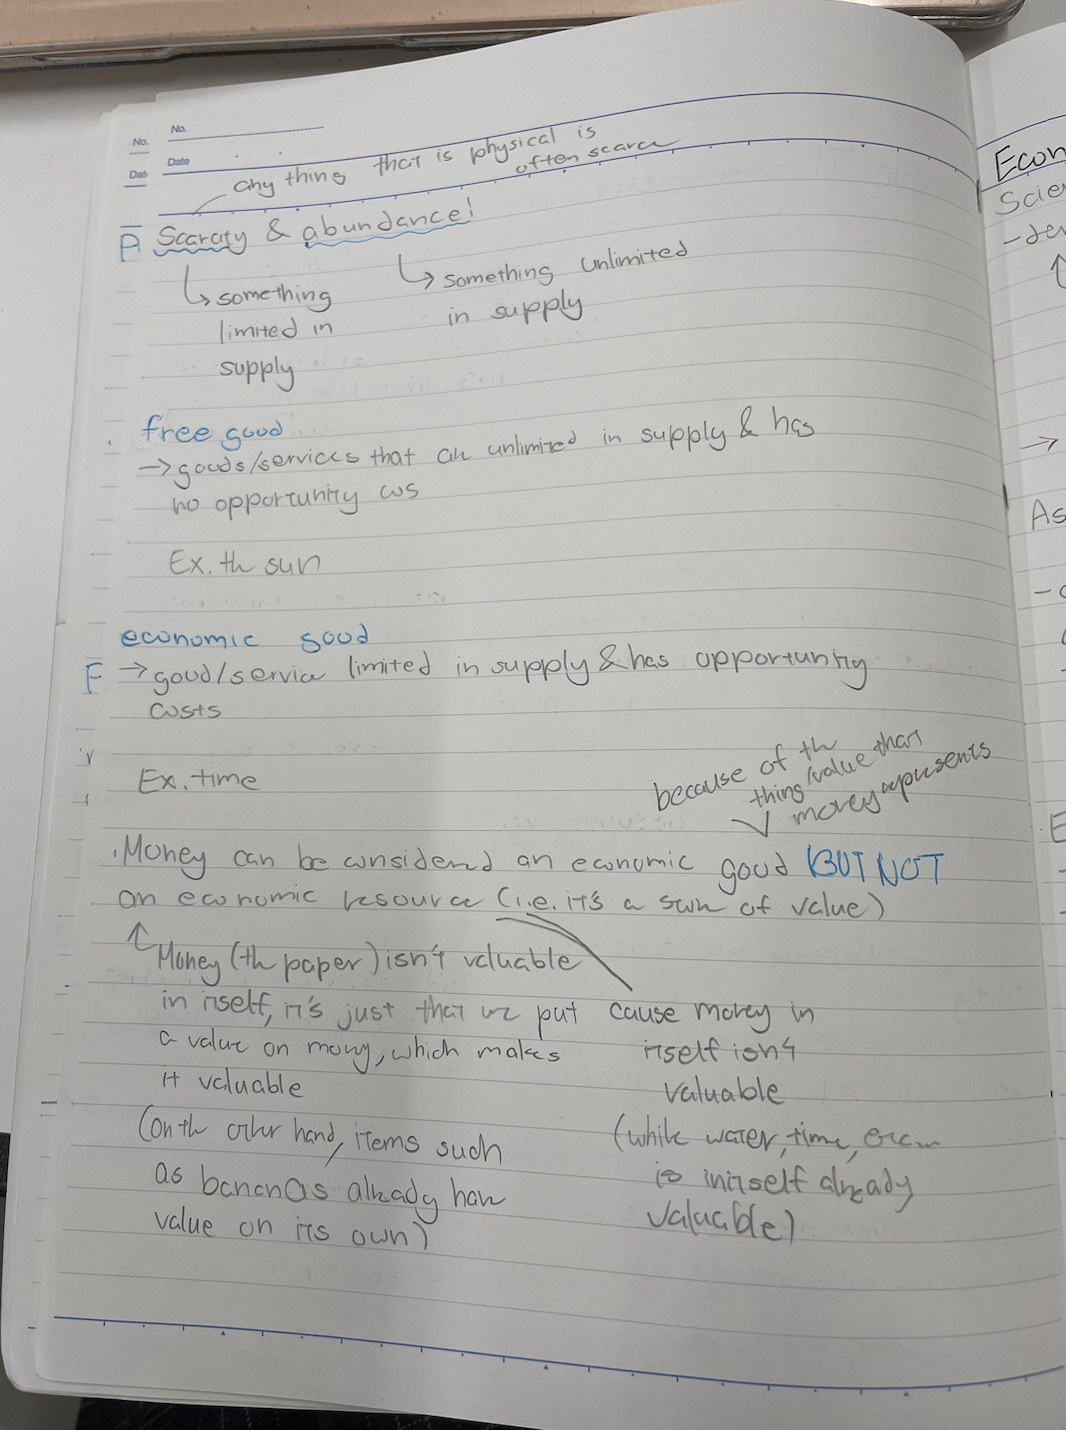 No.
No.
Date
Dat
any thing that is physical is
often scarce
A Scarcity & abundance!
↳ something
limited in
supply
↳ something unlimited
in supply
free good
→ goods/services that are unlimited in supply & has
no opportunity cos
Ex. the sun
economic good
F → good/service limited in supply & has opportunity
costs
Ex. time
because of the
thing/value that
money represents
. Money can be considered an economic good BUT NOT
an economic resource (i.e. it's a sum of value)
↑ Money (the paper) isn't valuable
in itself, it's just that we put
a value on money, which makes
it valuable
(on the other hand, items such
as bananas already have
value on its own)
cause money in
itself isn't
valuable
(while water, time, etc...
is in itself already
valuable)
Econ
Scie
→
As
E